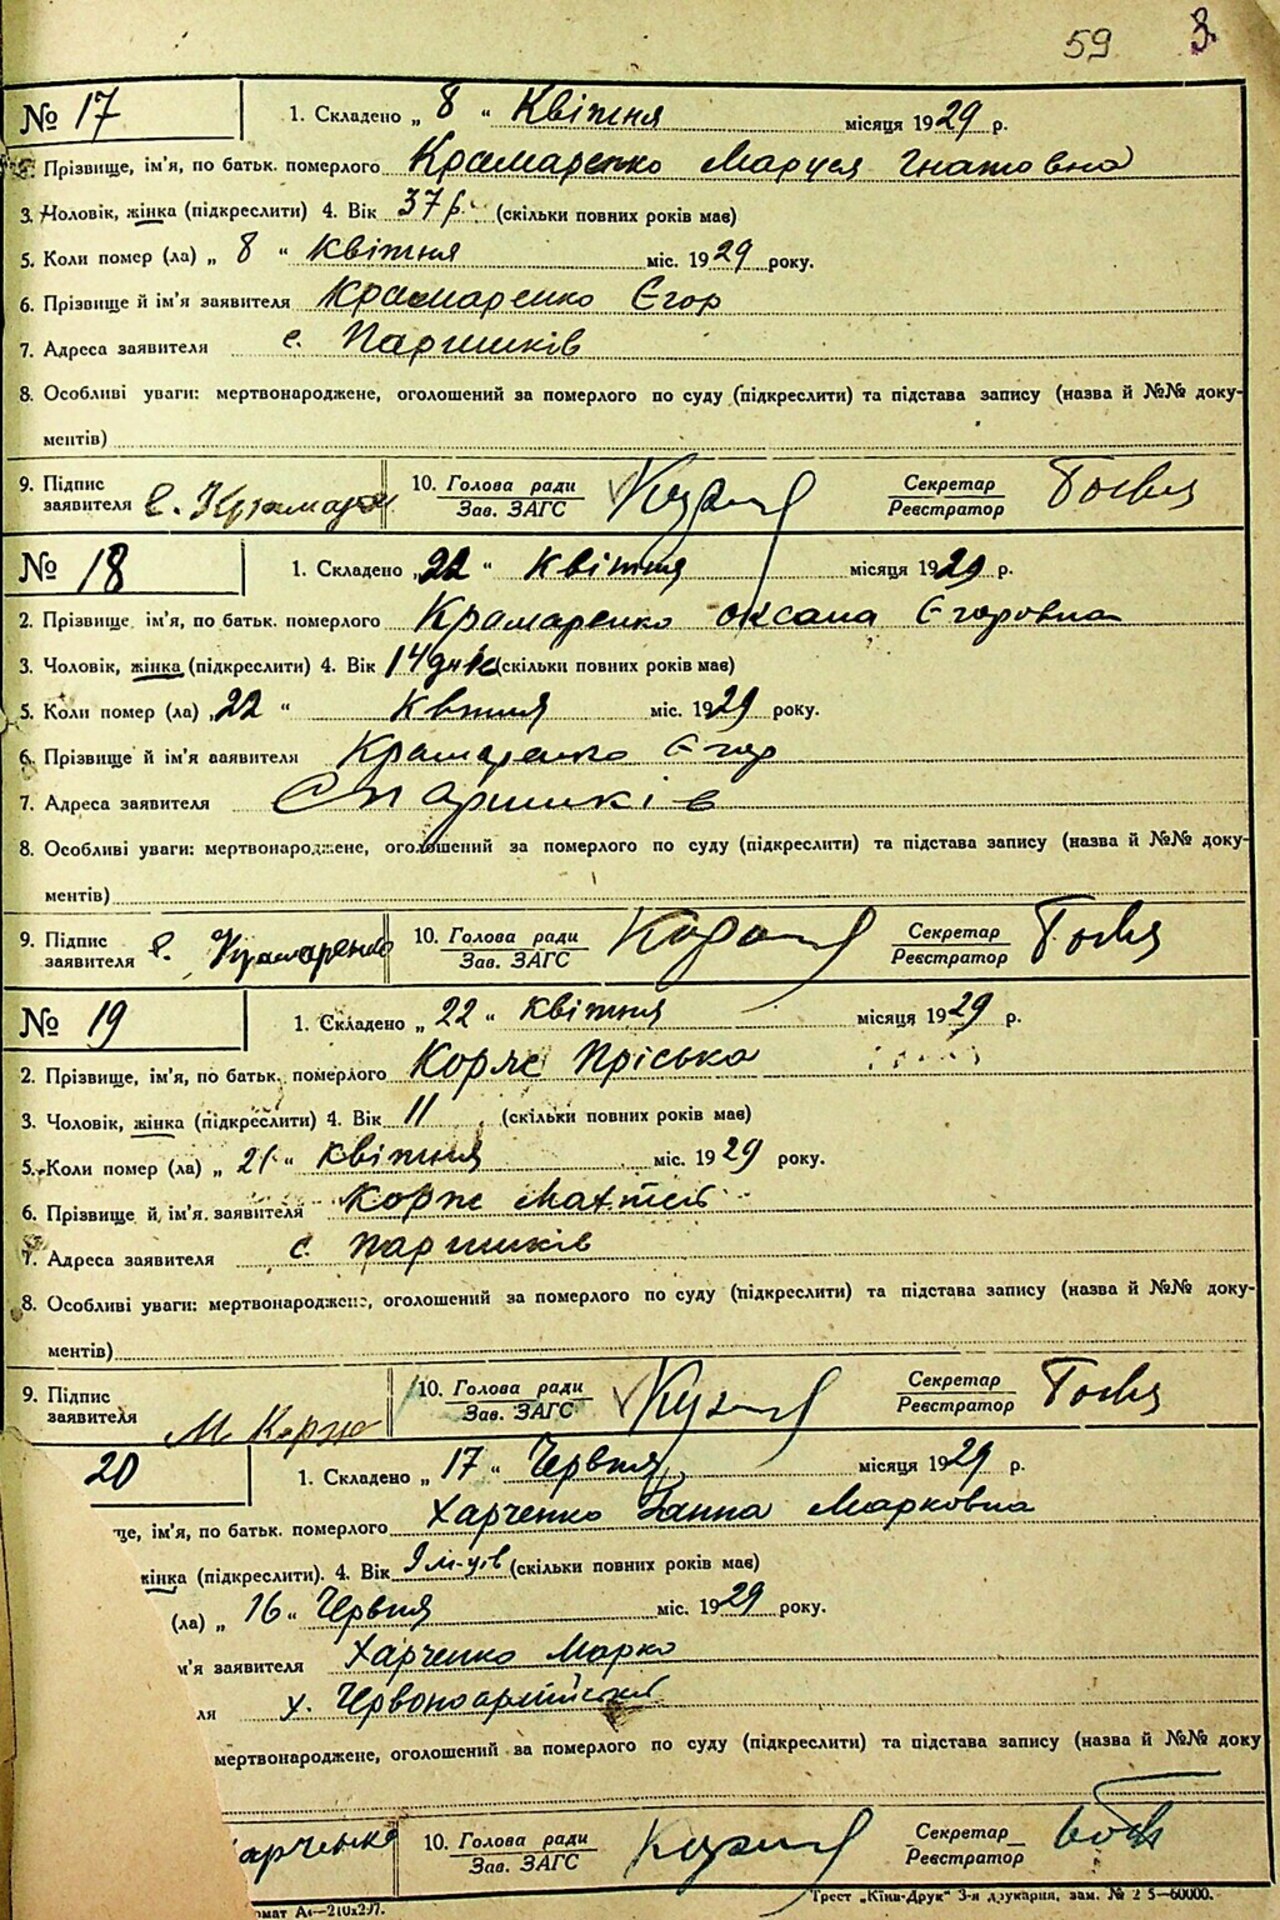 59 3.
№ 17 1. Складено „ 8 “ Квітня місяця 1929 р.
Прізвище, ім'я, по батьк. померлого Крамаренко Маруся Гнатовна
3. Чоловік, жінка (підкреслити) 4. Вік 37 р. (скільки повних років має)
5. Коли помер (ла) „ 8 “ Квітня міс. 1929 року.
6. Прізвище й ім'я заявителя Крамаренко Єгор
7. Адреса заявителя с. Паришків
8. Особливі уваги: мертвонароджене, оголошений за померлого по суду (підкреслити) та підстава запису (назва й №№ доку-
ментів)
9. Підпис заявителя Є. Крамаре 10. Голова ради Зав. ЗАГС Секретар Реєстратор
№ 18 1. Складено „22“ Квітня місяця 1929 р.
2. Прізвище, ім'я, по батьк. померлого Крамаренко Оксана Єгоровна
3. Чоловік, жінка (підкреслити) 4. Вік 14 дні (скільки повних років має)
5. Коли помер (ла) „22“ Квітня міс. 1929 року.
6. Прізвище й ім'я заявителя Крамаренко Єгор
7. Адреса заявителя С Паришків
8. Особливі уваги: мертвонароджене, оголошений за померлого по суду (підкреслити) та підстава запису (назва й №№ доку-
ментів)
9. Підпис заявителя Є. Крамаренко 10. Голова ради Зав. ЗАГС Секретар Реєстратор
№ 19 1. Складено „ 22 “ Квітня місяця 1929 р.
2. Прізвище, ім'я, по батьк. померлого Корж Пріська
3. Чоловік, жінка (підкреслити) 4. Вік 11 (скільки повних років має)
5. Коли помер (ла) „ 21 “ Квітня міс. 1929 року.
6. Прізвище й ім'я заявителя Корж Матвій
7. Адреса заявителя с. Паришків
8. Особливі уваги: мертвонароджене, оголошений за померлого по суду (підкреслити) та підстава запису (назва й №№ доку-
ментів)
9. Підпис заявителя М Корж 10. Голова ради Зав. ЗАГС Секретар Реєстратор
20 1. Складено „ 17 “ Червня місяця 1929 р.
ще, ім'я, по батьк. померлого Харченко Ганна Марковна
жінка (підкреслити). 4. Вік 9 м-ців (скільки повних років має)
(ла) „ 16 “ Червня міс. 1929 року.
м'я заявителя Харченко Марко
ля х. Червоноармійський
мертвонароджене, оголошений за померлого по суду (підкреслити) та підстава запису (назва й №№ доку
арченко 10. Голова ради Зав. ЗАГС Секретар Реєстратор
рмат А4—210х297. Трест „Київ-Друк“ 3-я друкарня, зам. № 2 5—60000.